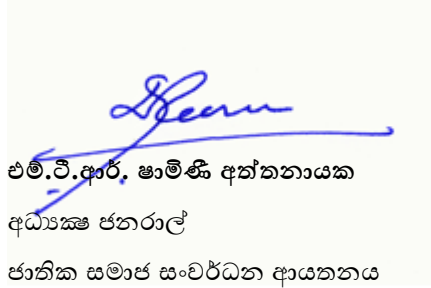 එම්.ටී.ආර්. ෂාමිණී අත්තනායක
අධ්‍යක්ෂ ජනරාල්
ජාතික සමාජ සංවර්ධන ආයතනය